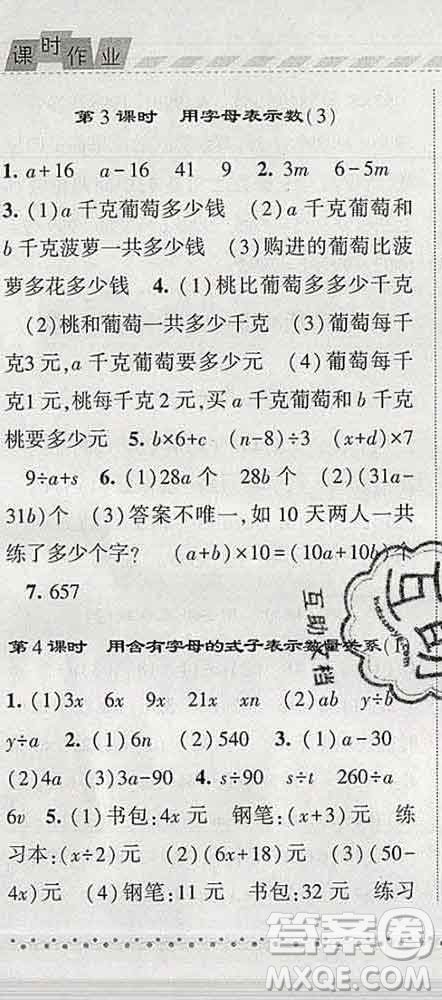 课时作业
第3课时 用字母表示数(3)
1. a+16 a-16 41 9 2. 3m 6-5m
3. (1)a千克葡萄多少钱 (2)a千克葡萄和
b千克菠萝一共多少钱 (3)购进的葡萄比菠
萝多花多少钱 4. (1)桃比葡萄多多少千克
(2)桃和葡萄一共多少千克 (3)葡萄每千
克3元,a千克葡萄要多少元 (4)葡萄每千
克1元,桃每千克2元,买a千克葡萄和b千克
桃要多少元 5. b×6+c (n-8)÷3 (x+d)×7
9÷a+s 6. (1)28a个 28b个 (2)(31a-
31b)个 (3)答案不唯一,如10天两人一共
练了多少个字? (a+b)×10=(10a+10b)个
7. 657
第4课时 用含有字母的式子表示数量关系(1)
1. (1)3x 6x 9x 21x xn (2)ab y÷b
y÷a 2. (1)6n (2)540 3. (1)a-30
(2)4a (3)3a-90 4. s÷90 s÷t 260÷a
6v 5. (1)书包:4x元 钢笔:(x+3)元 练
习本:(x÷2)元 (2)(6x+3)元 (3)(50-
4x)元 (4)钢笔:11元 书包:32元 练习
互助
互助文档
作业精灵
答案圈
MXQE.COM